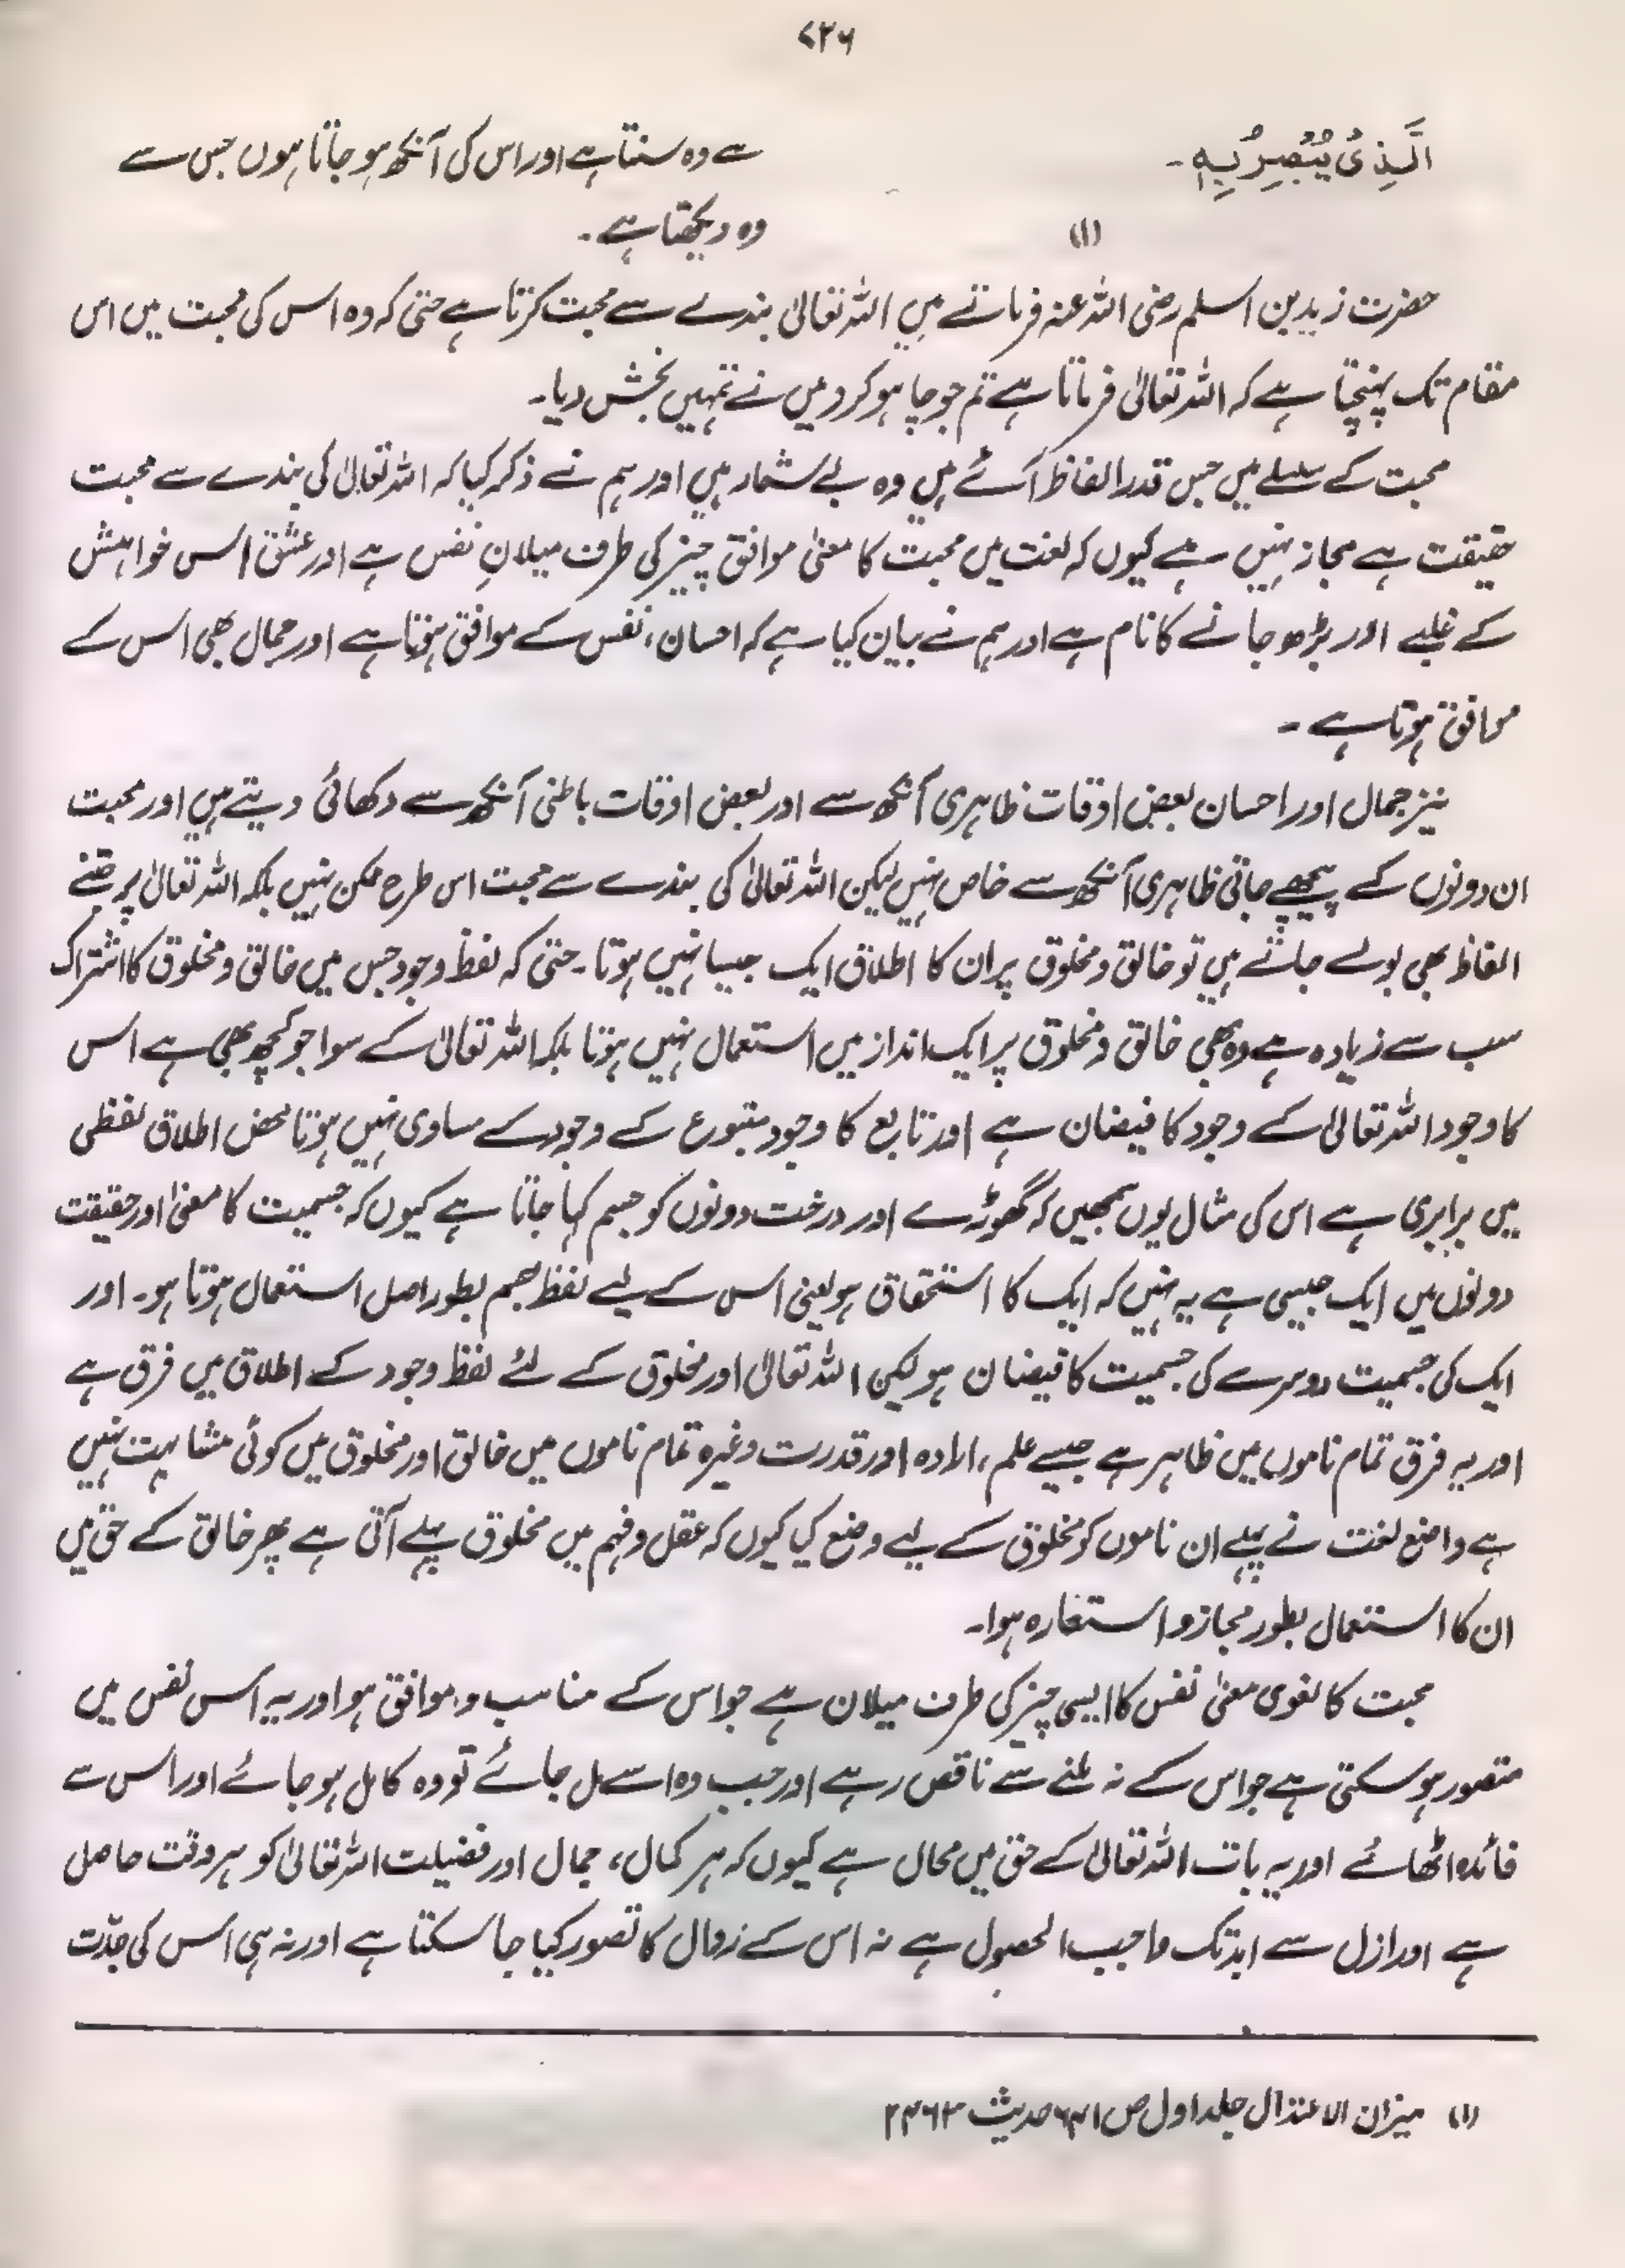 ۷۲۶
الَّذِیْ یُبْصِرُ بِہٖ۔
(۱)
سے وہ سنتا ہے اور اس کی آنکھ ہو جاتا ہوں جس سے
وہ دیکھتا ہے۔
حضرت زید بن اسلم رضی اللہ عنہ فرماتے ہیں اللہ تعالیٰ بندے سے محبت کرتا ہے حتیٰ کہ وہ اس کی محبت میں اس
مقام تک پہنچتا ہے کہ اللہ تعالیٰ فرماتا ہے تم جو چاہو کرو میں نے تمہیں بخش دیا۔
محبت کے سلسلے میں جس قدر الفاظ آئے ہیں وہ بے شمار ہیں اور ہم نے ذکر کیا کہ اللہ تعالیٰ کی بندے سے محبت
حقیقت ہے مجاز نہیں ہے کیوں کہ لغت میں محبت کا معنیٰ موافق چیز کی طرف میلانِ نفس ہے اور عشق اس خواہش
کے غلبے اور بڑھ جانے کا نام ہے اور ہم نے بیان کیا ہے کہ احسان، نفس کے موافق ہوتا ہے اور جمال بھی اس کے
موافق ہوتا ہے ۔
نیز جمال اور احسان بعض اوقات ظاہری آنکھ سے اور بعض اوقات باطنی آنکھ سے دکھائی دیتے ہیں اور محبت
ان دونوں کے پیچھے جاتی ظاہری آنکھ سے خاص نہیں لیکن اللہ تعالیٰ کی بندے سے محبت اس طرح ممکن نہیں بلکہ اللہ تعالیٰ پر جتنے
الفاظ بھی بولے جاتے ہیں تو خالق و مخلوق پر ان کا اطلاق ایک جیسا نہیں ہوتا۔ حتیٰ کہ لفظ وجود جس میں خالق و مخلوق کا اشتراک
سب سے زیادہ ہے وہ بھی خالق و مخلوق پر ایک انداز میں استعمال نہیں ہوتا بلکہ اللہ تعالیٰ کے سوا جو کچھ بھی ہے اس
کا وجود اللہ تعالیٰ کے وجود کا فیضان ہے اور تابع کا وجود متبوع کے وجود کے مساوی نہیں ہوتا محض اطلاق لفظی
میں برابری ہے اس کی مثال یوں سمجھیں کہ گھوڑے اور درخت دونوں کو جسم کہا جاتا ہے کیوں کہ جسمیت کا معنیٰ اور حقیقت
دونوں میں ایک جیسی ہے یہ نہیں کہ ایک کا استحقاق ہو یعنی اس کے لیے لفظ جسم بطور اصل استعمال ہوتا ہو۔ اور
ایک کی جسمیت دوسرے کی جسمیت کا فیضان ہو لیکن اللہ تعالیٰ اور مخلوق کے لئے لفظ وجود کے اطلاق میں فرق ہے
اور یہ فرق تمام ناموں میں ظاہر ہے جیسے علم، ارادہ اور قدرت وغیرہ تمام ناموں میں خالق اور مخلوق میں کوئی مشابہت نہیں
ہے واضع لغت نے پہلے ان ناموں کو مخلوق کے لیے وضع کیا کیوں کہ عقل و فہم میں مخلوق پہلے آتی ہے پھر خالق کے حق میں
ان کا استعمال بطور مجاز و استعارہ ہوا۔
محبت کا لغوی معنیٰ نفس کا ایسی چیز کی طرف میلان ہے جو اس کے مناسب و موافق ہو اور یہ اس نفس میں
متصور ہو سکتی ہے جو اس کے نہ ملنے سے ناقص رہے اور جب وہ اسے مل جائے تو وہ کامل ہو جائے اور اس سے
فائدہ اٹھائے اور یہ بات اللہ تعالیٰ کے حق میں محال ہے کیوں کہ ہر کمال، جمال اور فضیلت اللہ تعالیٰ کو ہر وقت حاصل
ہے اور ازل سے ابد تک واجب الحصول ہے نہ اس کے زوال کا تصور کیا جا سکتا ہے اور نہ ہی اس کی جدّت
(۱) میزان الاعتدال جلد اول ص ۶۴۱ حدیث ۲۴۶۳